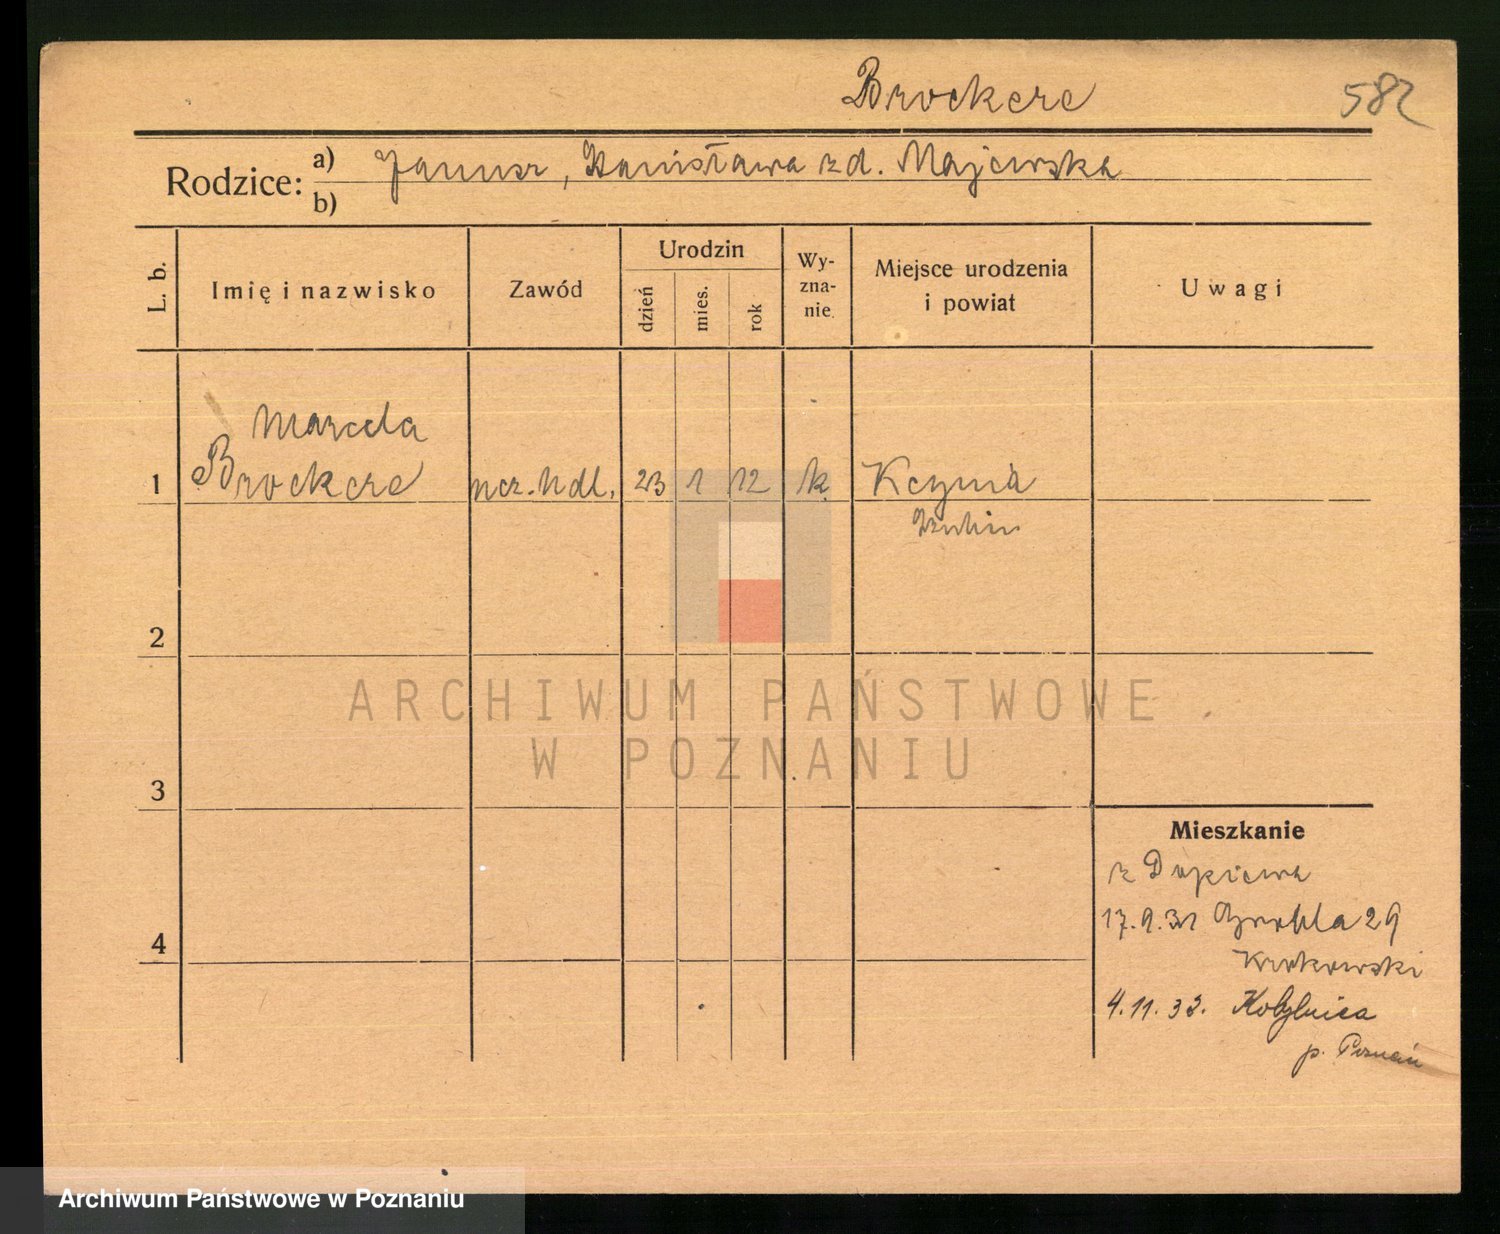 Brockere 582
Rodzice: a) Janusz, Stanisława z d. Majewska
b)
L. b. Imię i nazwisko Zawód Urodzin dzień mies. rok Wy-zna-nie. Miejsce urodzenia i powiat Uwagi
Marcela
1 Brockere ucz. hdl. 23 1 12 k. Kcynia
Szubin
2
3
4
Mieszkanie
z Dopiewa
17.9.31 Grobla 29
Krokowski
4.11.32. Kobylnica
p. Poznań
ARCHIWUM PAŃSTWOWE
W POZNANIU
Archiwum Państwowe w Poznaniu